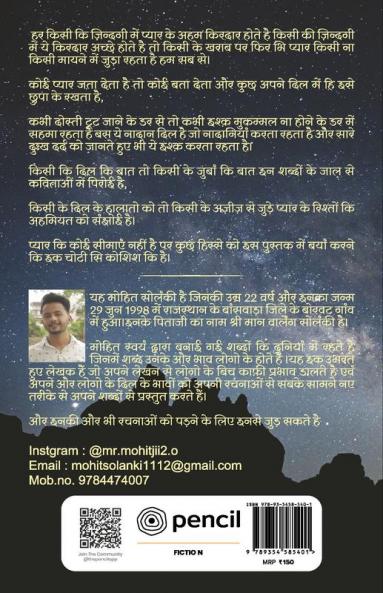 हर किसी कि ज़िन्दगी में प्यार के अहम किरदार होते है किसी की ज़िन्दगी
में ये किरदार अच्छे होते है तो किसी के खराब पर फिर भि प्यार किसी ना
किसी मायने में जुड़ा रहता है हम सब से।
कोई प्यार जता देता है तो कोई बता देता और कुछ अपने दिल में हि इसे
छुपा के रखता है,
कभी दोस्ती टूट जाने के डर से तो कभी इश्क़ मुकम्मल ना होने के डर में
सहमा रहता है बस ये नादान दिल है जो नादानियाँ करता रहता है और सारे
दुःख दर्द को जानते हुए भी ये इश्क़ करता रहता है।
किसी कि दिल कि बात तो किसी के जुबाँ कि बात इन शब्दों के जाल से
कविताओं में पिरोई है,
किसी के दिल के हालातो को तो किसी के अज़ीज़ से जुड़े प्यार के रिश्तों कि
अहमियत को संझोई है।
प्यार कि कोई सीमाएँ नहीं है पर कुछ हिस्से को इस पुस्तक में बयाँ करने
कि इक चोटी सि कोशिश कि है।
यह मोहित सोलंकी है जिनकी उम्र 22 वर्ष और इनका जन्म
29 जून 1998 में राजस्थान के बांसवाड़ा जिले के बोरवट गाँव
में हुआ।इनके पिताजी का नाम श्री मान वालेंग सोलंकी है।
मोहित स्वयं द्वारा बनाई गई शब्दों कि दुनियाँ में रहते है
जिनमें शब्द उनके और भाव लोगो के होते है।यह इक उभरते
हुए लेखक है जो अपने लेखन से लोगो के बिच काफ़ी प्रभाव डालते है एवं
अपने और लोगो के दिल के भावों को अपनी रचनाओं से सबके सामने नए
तरीके से अपने शब्दों से प्रस्तुत करते है।
और इनकी और भी रचनाओं को पड़ने के लिए इनसे जुड़ सकते है .
Instgram : @mr.mohitjii2.o
Email : mohitsolanki1112@gmail.com
Mob.no. 9784474007
Join The Community
@thepencilapp
pencil
FICTION
ISBN 978-93-5458-540-1
9 789354 585401
MRP ₹150